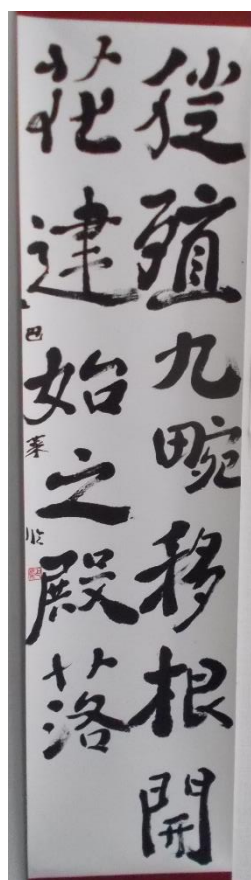 徙殖九畹移根開
花建始之殿落